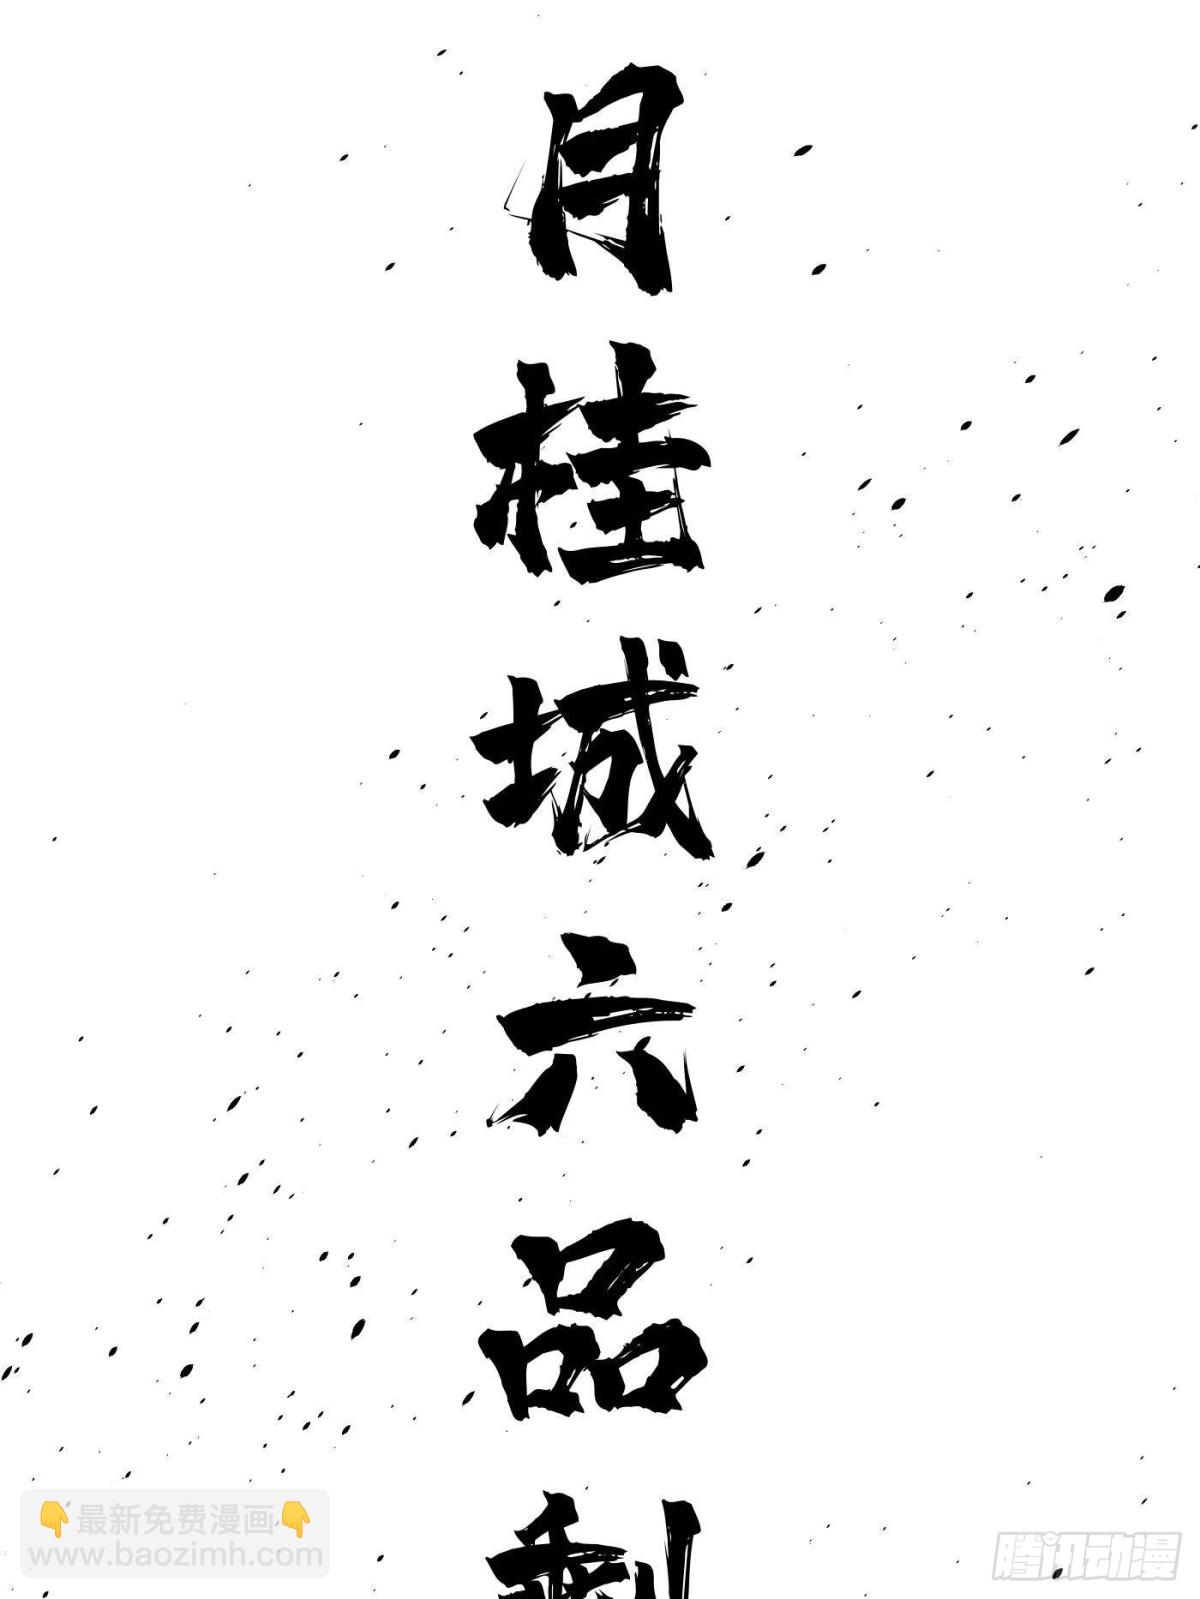 月桂城六品
👇最新免费漫画👇
www.baozimh.com
腾讯动漫